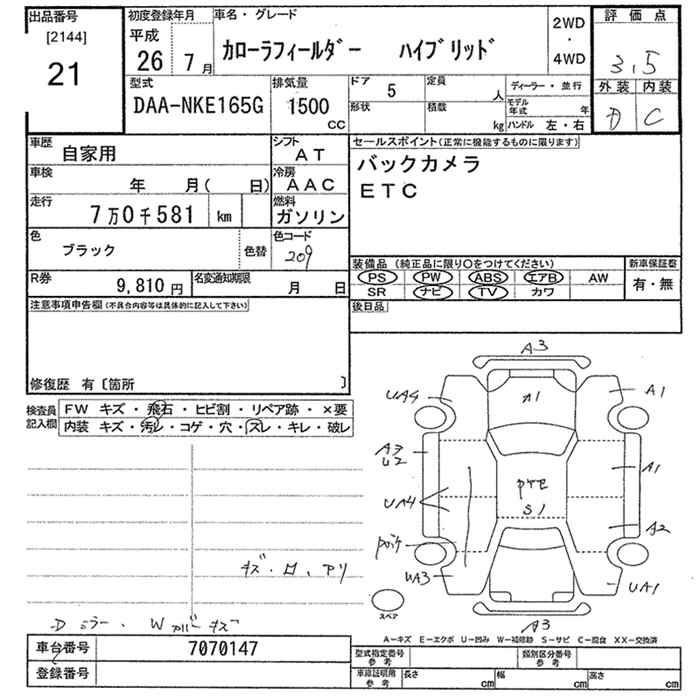 出品番号
[2144]
21
初度登録年月
平成
26 7月
車名・グレード
カローラフィールダー ハイブリッド
2WD
・
4WD
評価点
3.5
外装 内装
D C
型式
DAA-NKE165G
排気量
1500
CC
ドア 5
定員 人
形状
積載 kg
ディーラー・並行
モデル年式 年
ハンドル 左・右
車歴
自家用
シフト
AT
車検
年 月( 日)
冷房
AAC
走行
7万0千581 km
燃料
ガソリン
色
ブラック
色替
色コード
209
R券
9,810円
名変通知期限
月 日
セールスポイント(正常に機能するものに限ります)
バックカメラ
ETC
装備品 (純正品に限り○をつけてください)
PS PW ABS エアB AW
SR ナビ TV カワ
新車保証書
有・無
後日品
注意事項申告欄(不具合内容等は具体的に記入して下さい)
修復歴 有〔箇所 〕
検査員
記入欄
FW キズ・飛石・ヒビ割・リペア跡・×要
内装 キズ・汚レ・コゲ・穴・スレ・キレ・破レ
A3
UA4
A1
A1
A3
U2
A1
PTE
S1
UA4
A2
UA3
UA1
A3
スペア
Dミラー、
A-キズ E-エクボ U-凹み W-補修跡 S-サビ C-腐食 XX-交換済
車台番号
7070147
登録番号
型式指定番号
参考
類別区分番号
参考
車庫証明用
参考
長さ cm
幅 cm
高さ cm